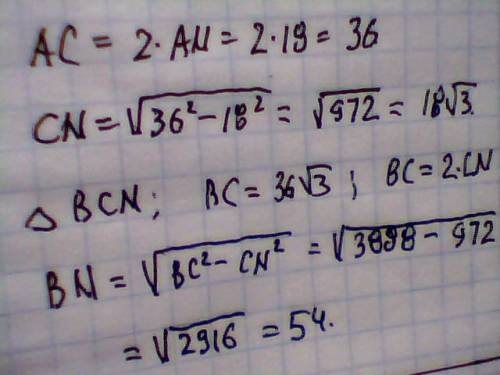 AC = 2·AN = 2·18 = 36
CN = √36² - 18² = √972 = 18√3.
△ BCN; BC = 36√3; BC = 2·CN
BN = √BC² - CN² = √3888 - 972
= √2916 = 54.